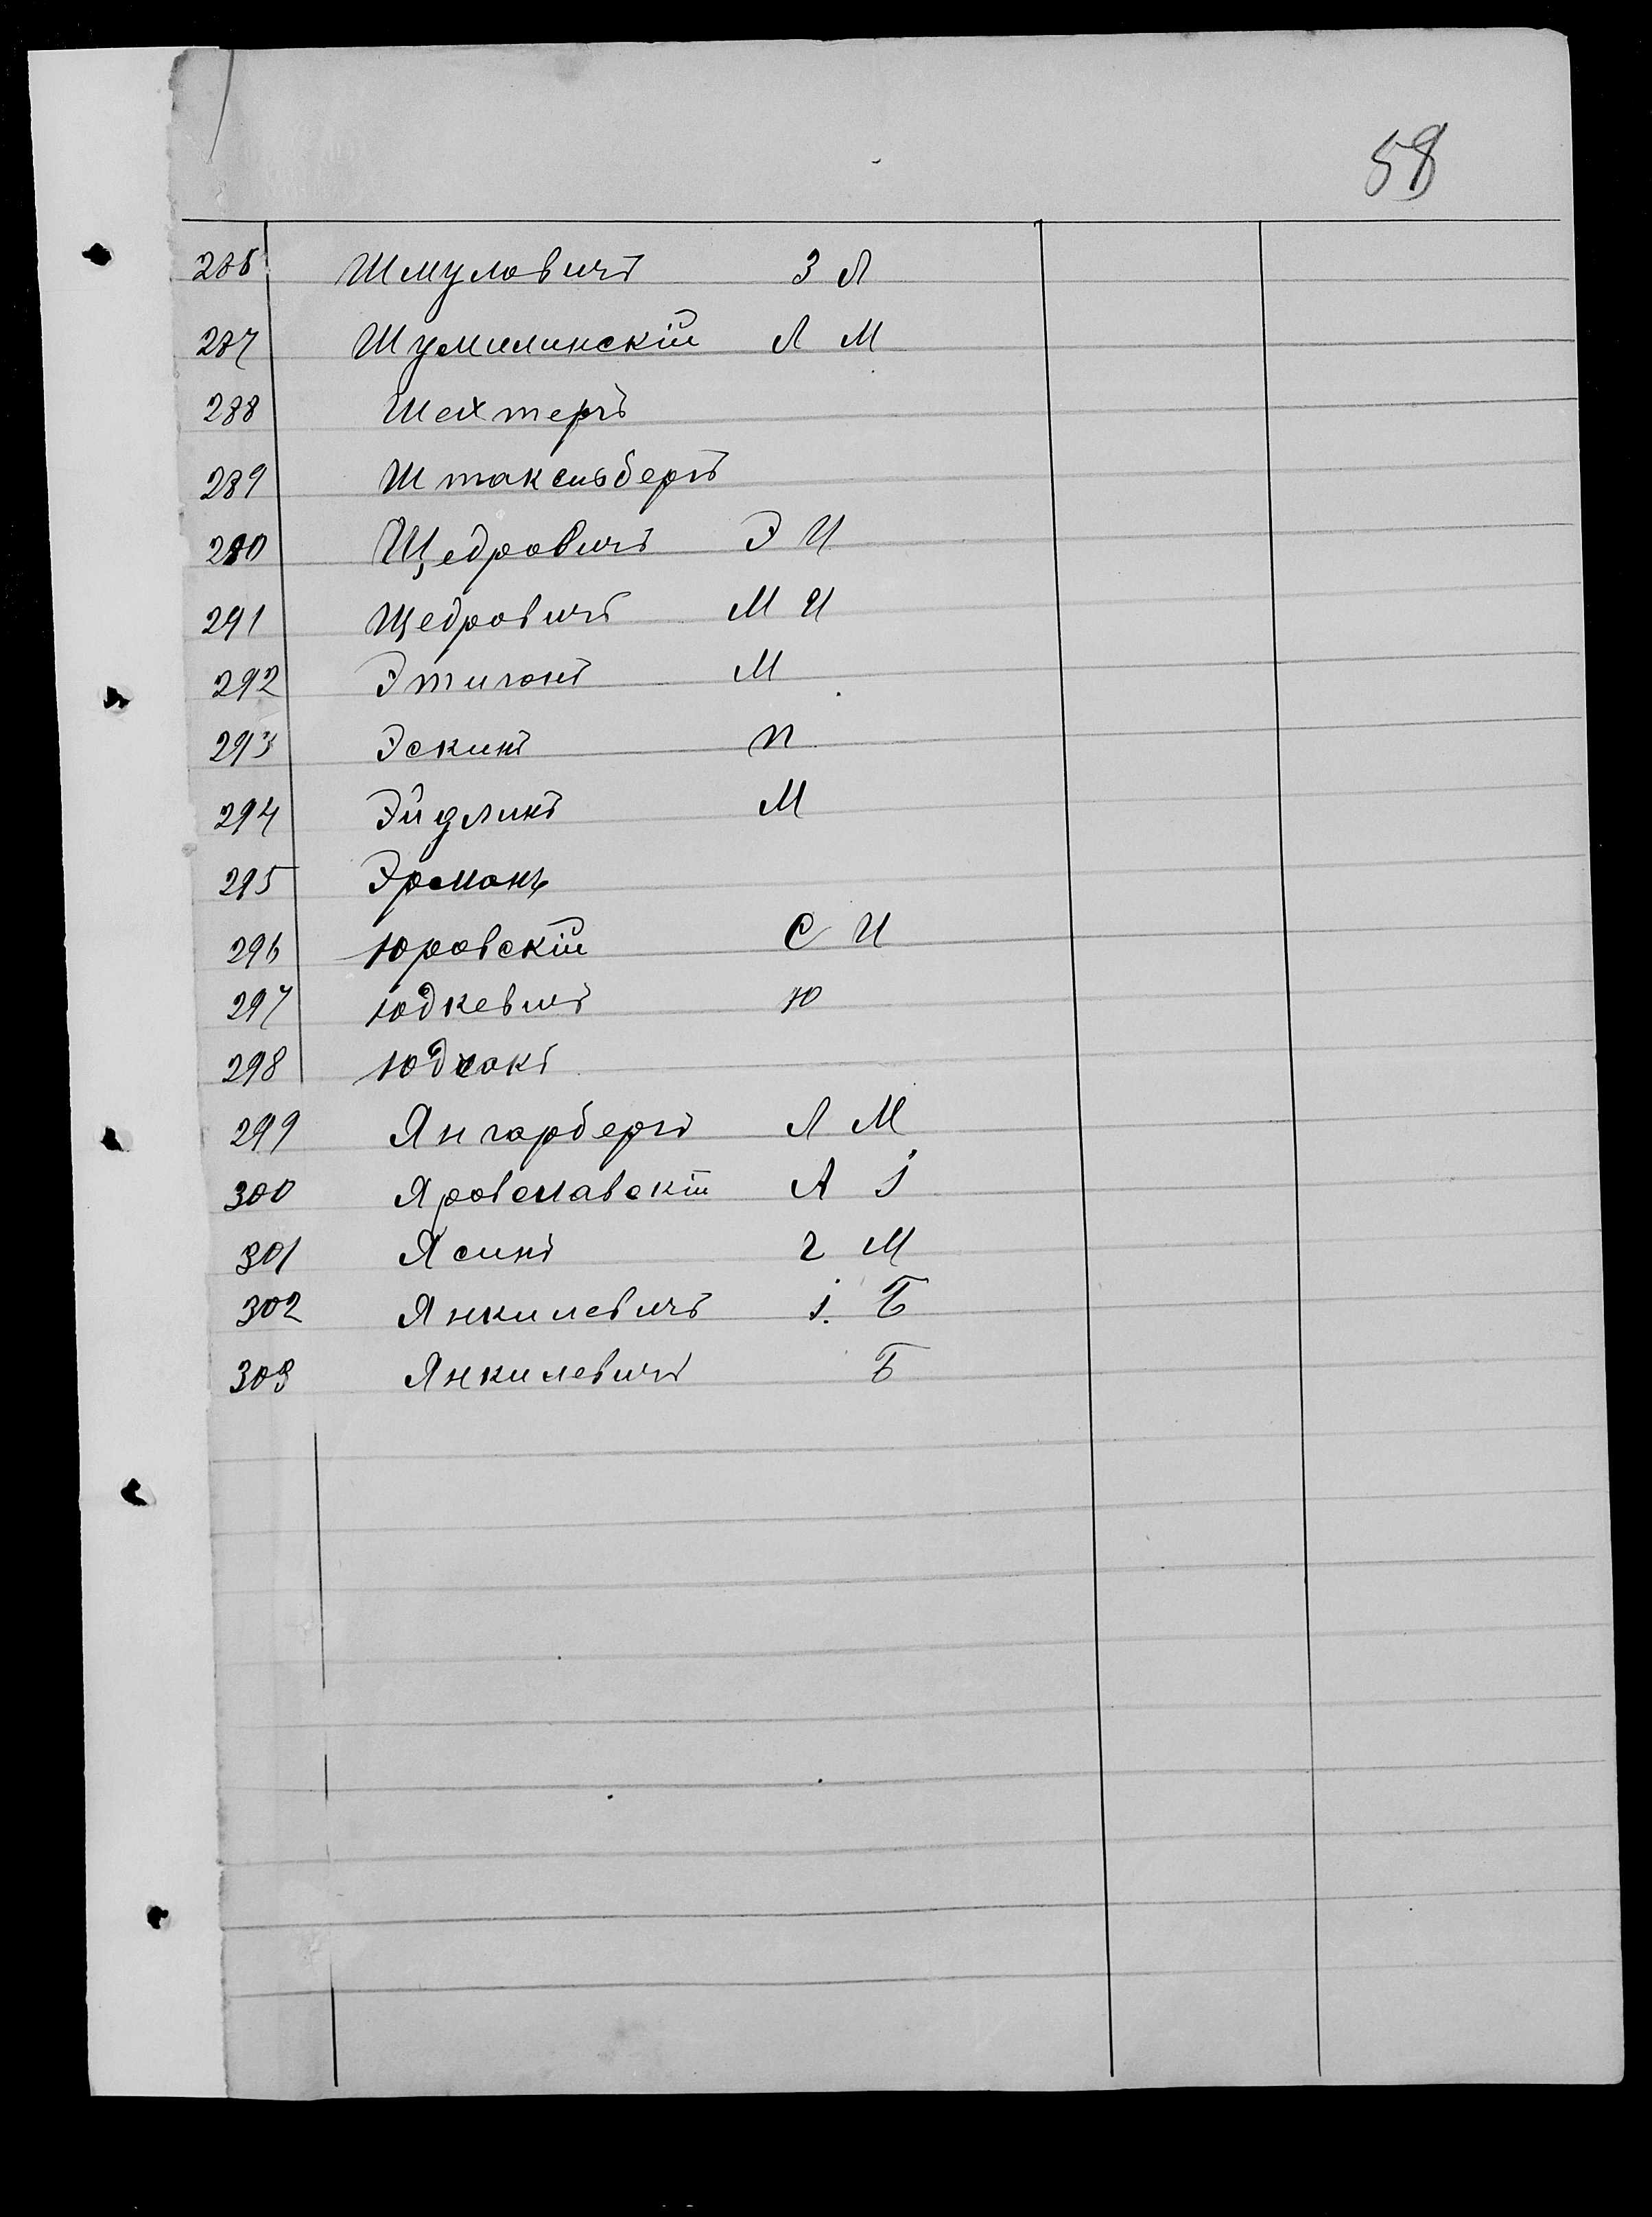 58
286 Шмуловичъ З Л
287 Шумилинскій Л М
288 Шехтеръ
289 Штакельбергъ
290 Щедровичъ Э И
291 Щедровичъ М И
292 Этигонъ М
293 Эскинъ П
294 Эйдлинъ М
295 Эрманъ
296 Юровскій С И
297 Юдкевичъ Ю
298 Юдсакъ
299 Янгарберъ Л М
300 Яровславскій А І
301 Ясинъ Г М
302 Янкилевичъ І. Б
303 Янкилевичъ Б